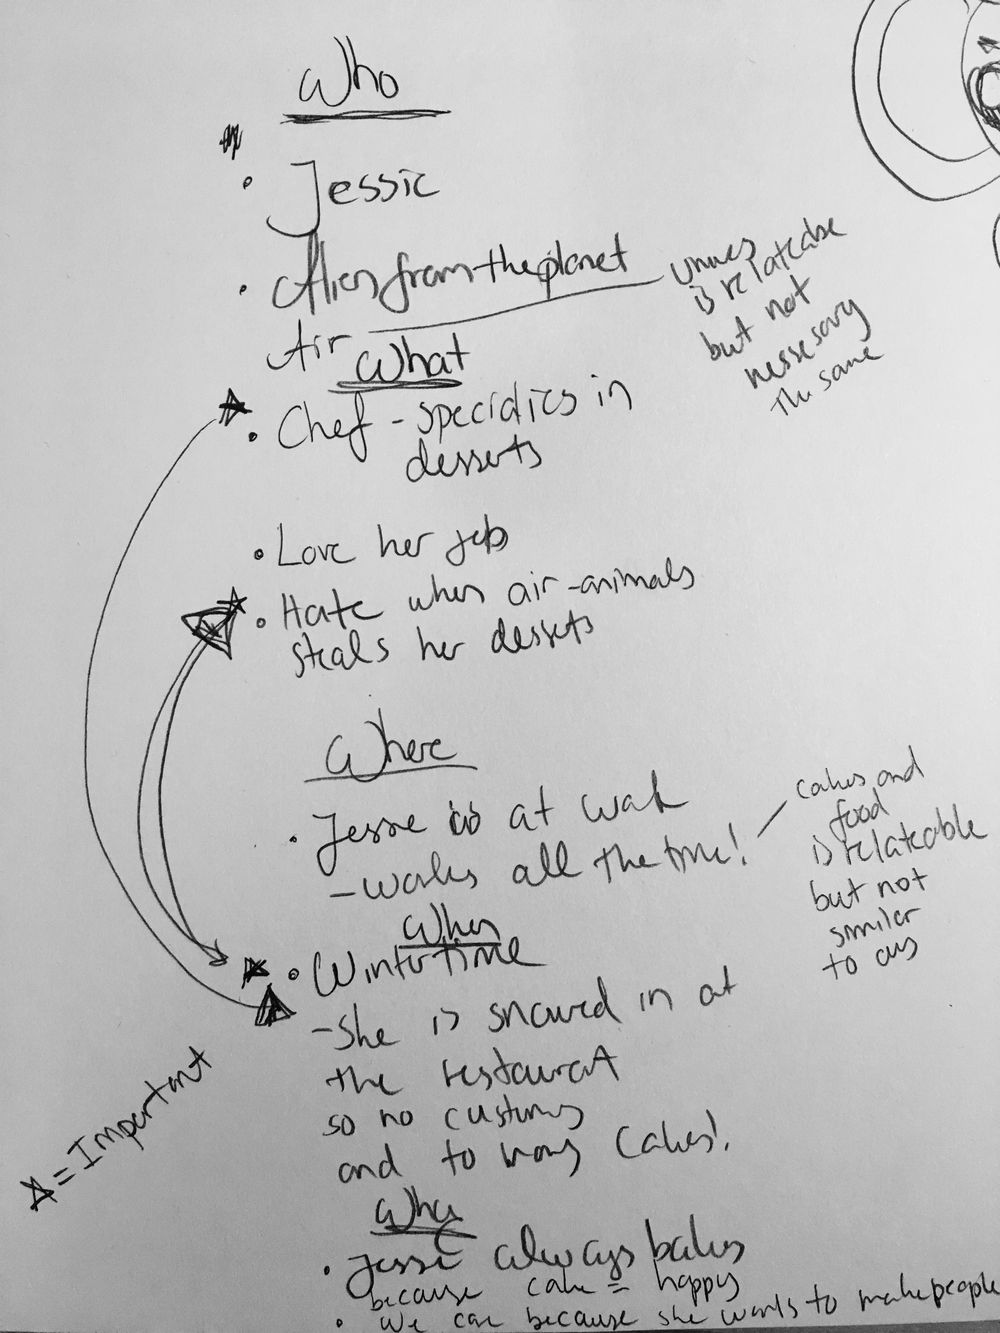 Who
• Jessie
• Alien from the planet
Air
unives
is relateable
but not
nessesary
the same
What
• Chef - specidics in
desserts
• Love her job
• Hate when air-animals
steals her dessets
Where
• Jessie is at work
- works all the time!
cakes and
food
is relateable
but not
similer
to ours
When
• Wintertime
- She is snowed in at
the restaurat
so no custums
and to many cakes!
☆ = Important
Why
• Jessie always bakes
because cake = happy
• We care because she wants to make people